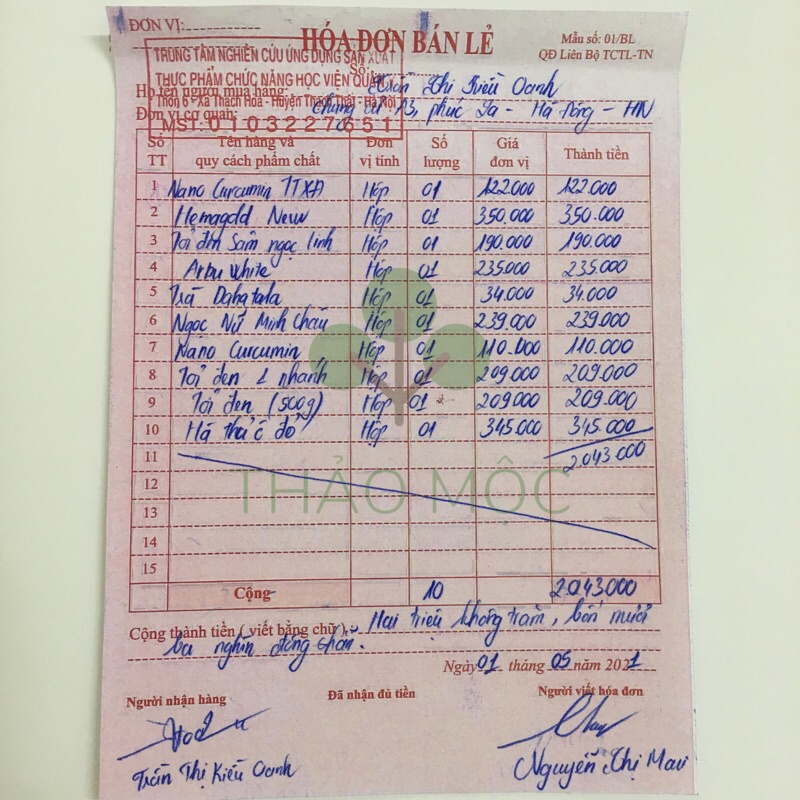 ĐƠN VỊ:
HÓA ĐƠN BÁN LẺ
Mẫu số: 01/BL
QĐ Liên Bộ TCTL-TN
TRUNG TÂM NGHIÊN CỨU ỨNG DỤNG SẢN XUẤT
THỰC PHẨM CHỨC NĂNG HỌC VIỆN QUÂN Y
Thôn 6 - Xã Thạch Hoà - Huyện Thạch Thất - Hà Nội
MST: 0103227651
Số:
Họ tên người mua hàng: Trần Thị Kiều Oanh
Đơn vị cơ quan: Chung cư A3, phúc La - Hà Đông - HN
Số TT Tên hàng và quy cách phẩm chất Đơn vị tính Số lượng Giá đơn vị Thành tiền
1 Nano Curcumin TTXA Hộp 01 122.000 122.000
2 Hemagold New Hộp 01 350.000 350.000
3 Tỏi đen Sâm ngọc linh Hộp 01 190.000 190.000
4 Arbu White Hộp 01 235.000 235.000
5 Trà Dahatala Hộp 01 34.000 34.000
6 Ngọc Nữ Minh Châu Hộp 01 239.000 239.000
7 Nano Curcumin Hộp 01 110.000 110.000
8 Tỏi đen 1 nhánh Hộp 01 209.000 209.000
9 Tỏi đen (500g) Hộp 01 209.000 209.000
10 Hà thủ ô đỏ Hộp 01 345.000 345.000
11 2.043.000
12
THẢO MỘC
13
14
15
Cộng 10 2.043.000
Cộng thành tiền ( viết bằng chữ ): Hai triệu không trăm, bốn mươi
ba nghìn đồng chẵn.
Ngày 01 tháng 05 năm 2021
Người nhận hàng Đã nhận đủ tiền Người viết hóa đơn
Trần Thị Kiều Oanh Nguyễn Thị Mai